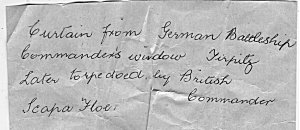 Curtain from German Battleship
Commanders window Tirpitz
Later torpedoed by British
Scapa Flow. Commander